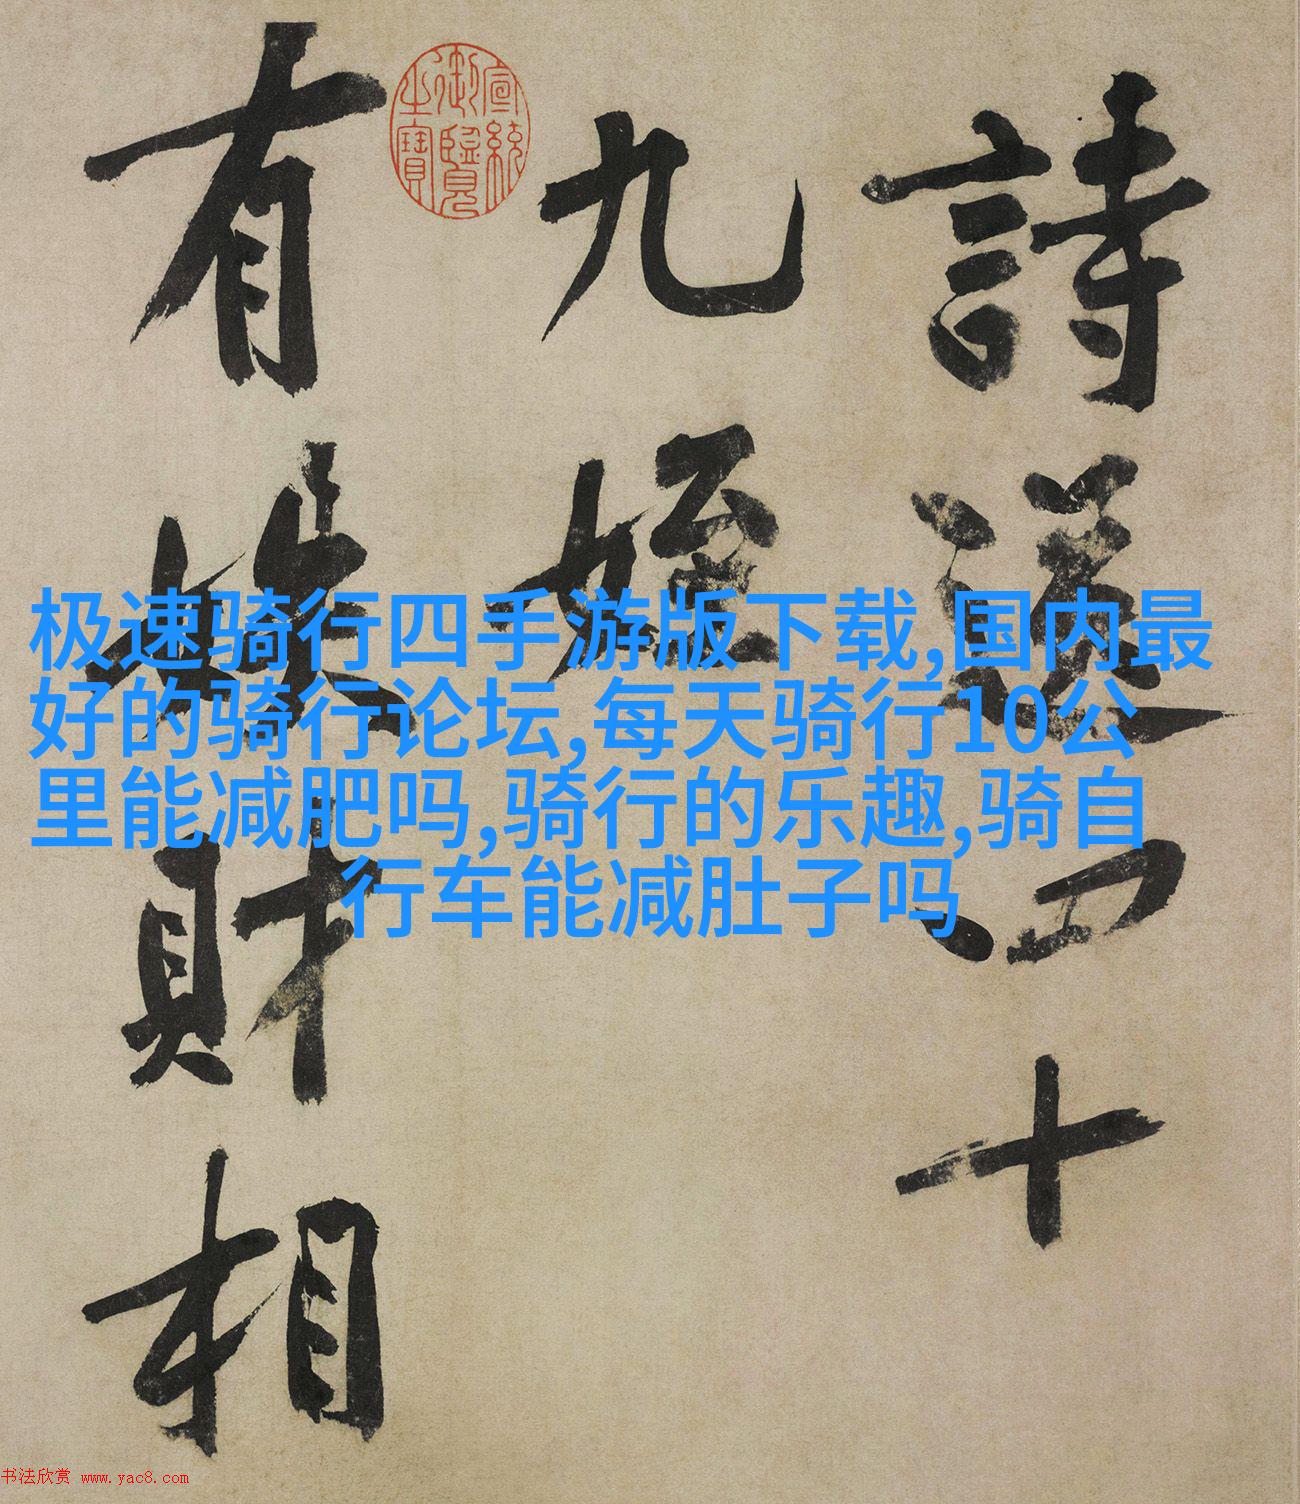 詩送四十
九姪
有
財相
宣統
御覽
之寶
极速骑行四手游版下载,国内最
好的骑行论坛,每天骑行10公
里能减肥吗,骑行的乐趣,骑自
行车能减肚子吗
书法欣赏 www.yac8.com